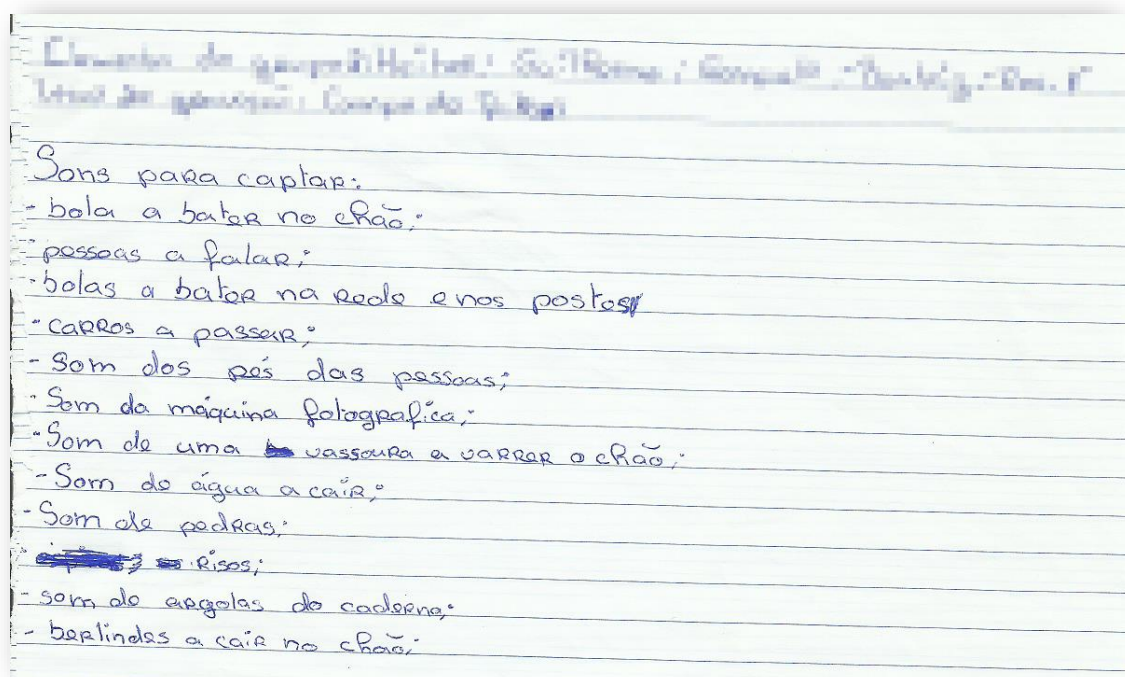 Sons para captar:
- bola a bater no chão;
- pessoas a falar;
- bolas a bater na rede e nos postes
- carros a passar;
- Som dos pés das pessoas;
- Som da máquina fotografica;
- Som de uma vassoura a varrer o chão;
- Som de água a cair;
- Som de pedras;
- Risos;
- som de argolas do caderno;
- berlindes a cair no chão;